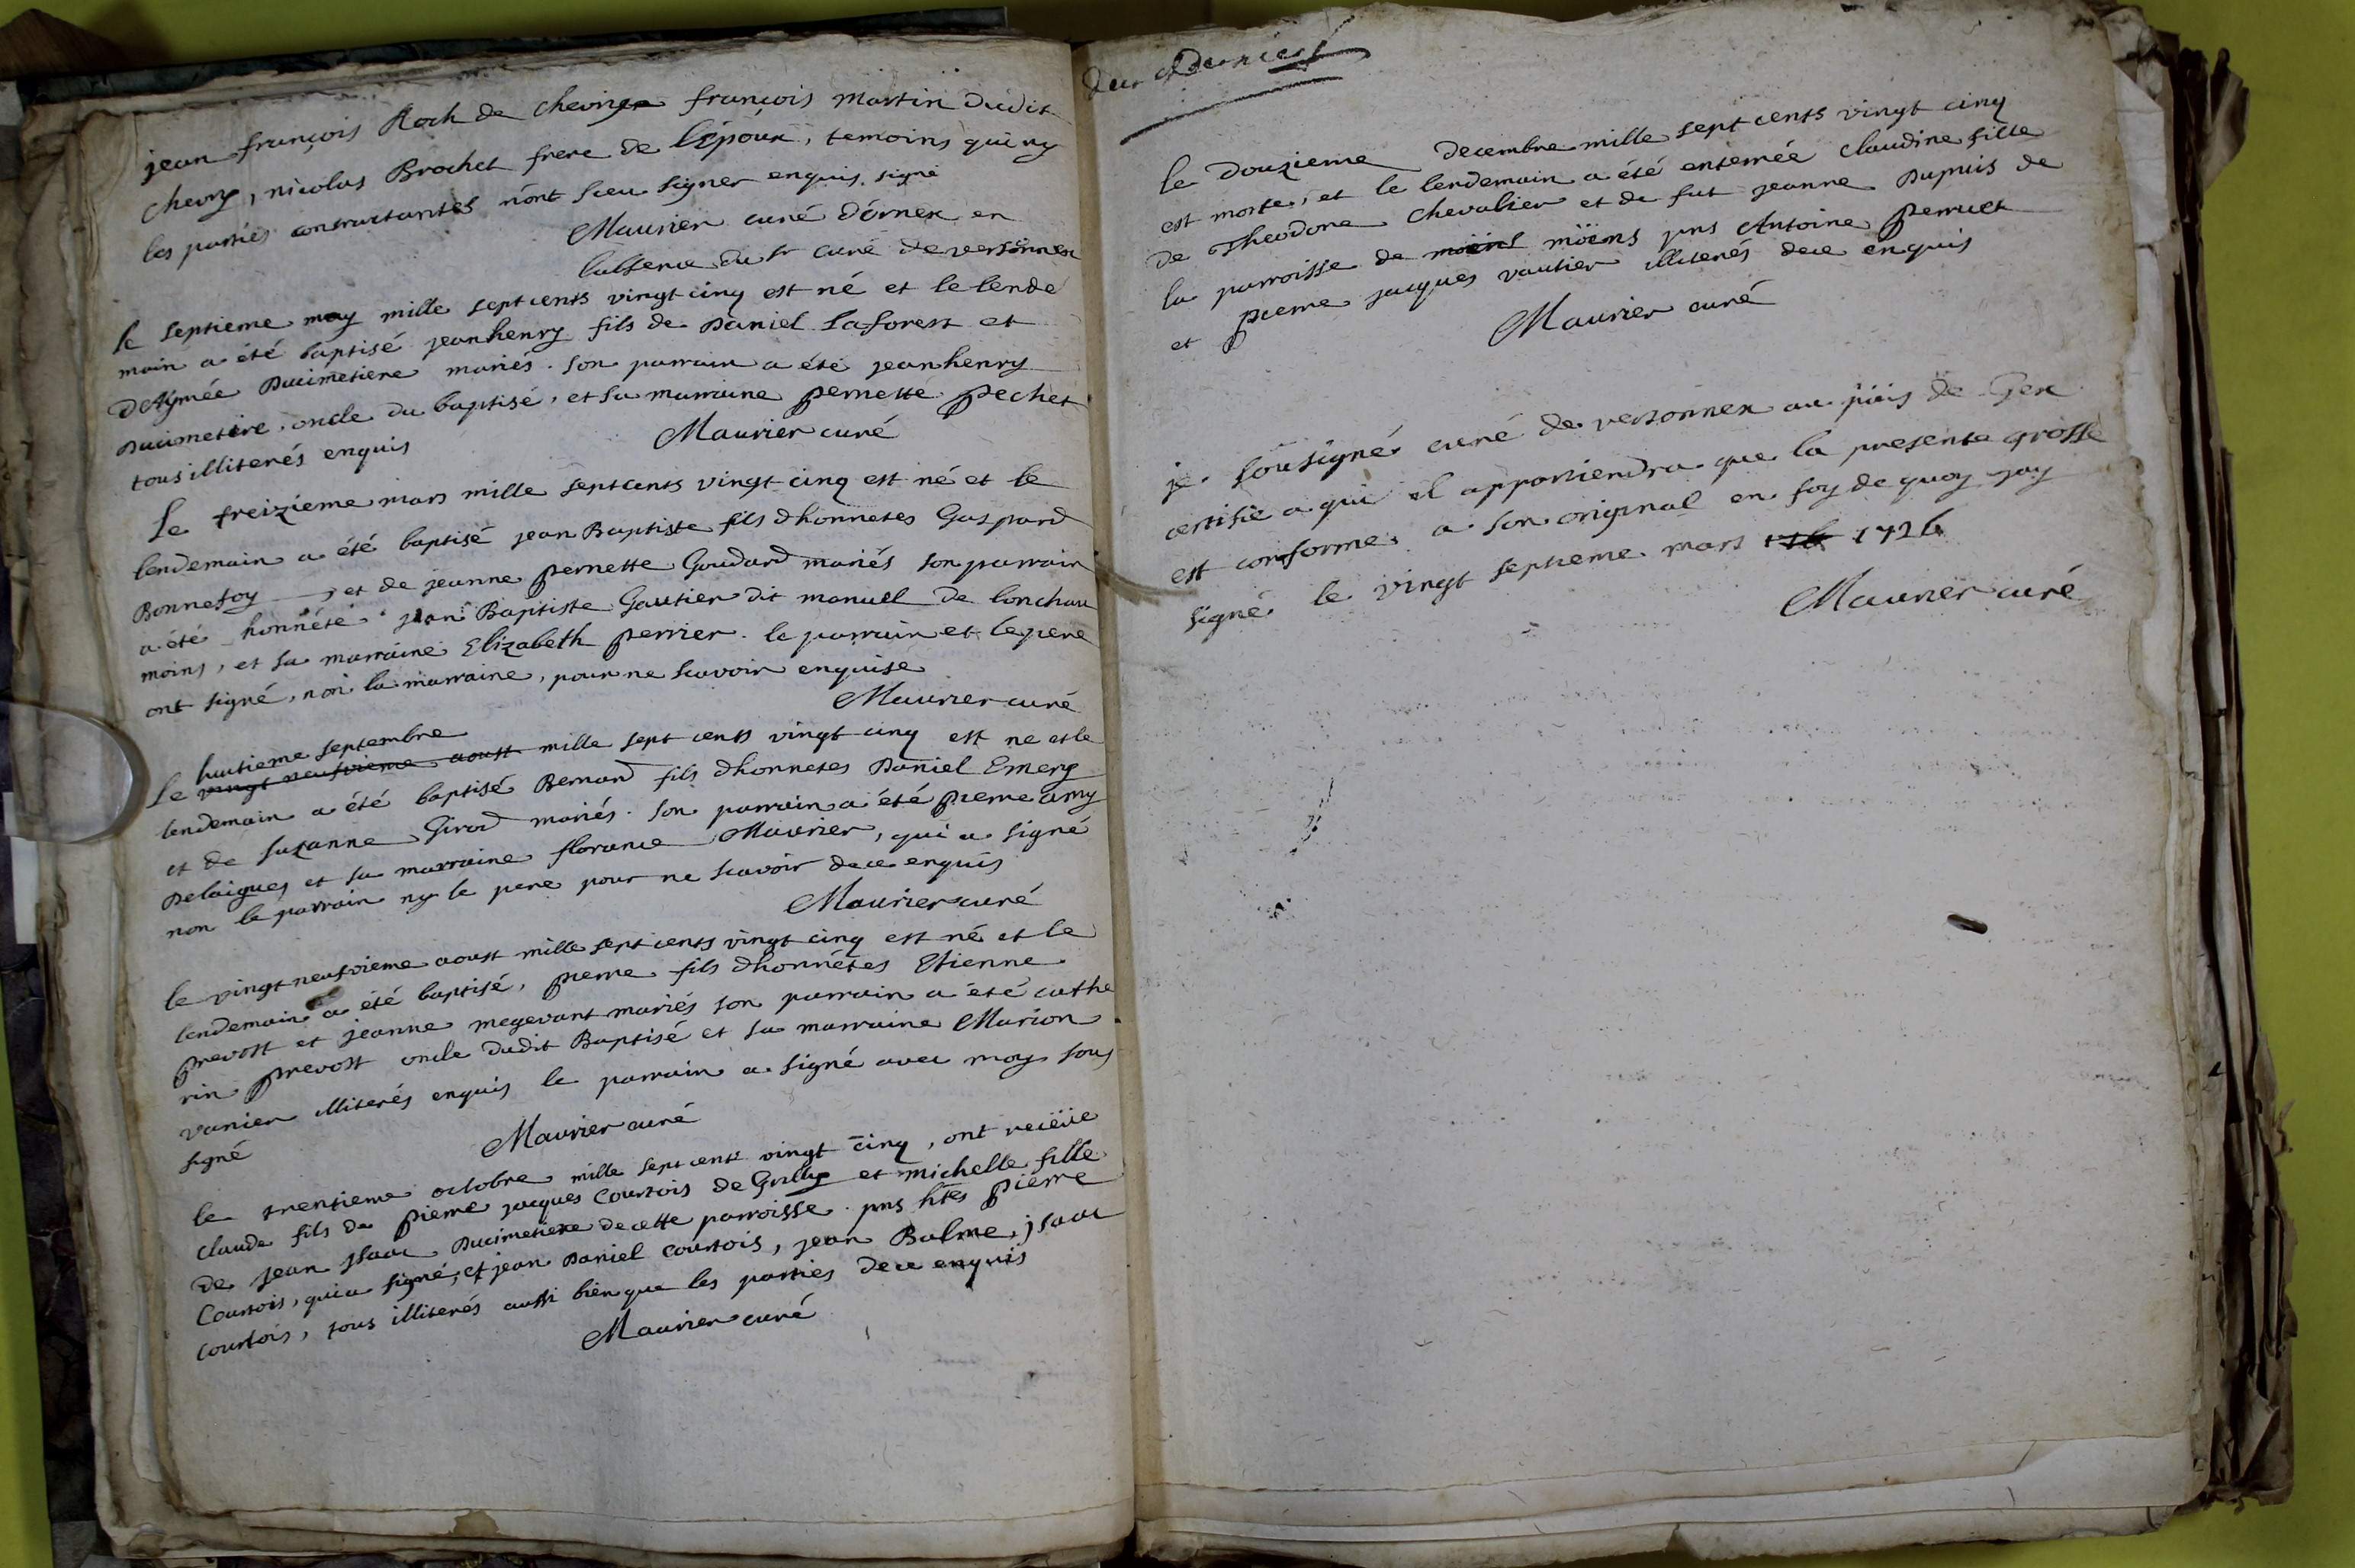 jean françois Roch de chevry françois martin dudit
chevry, nicolas Brochet frere de l'époux, temoins qui ny
les parties contractantes n'ont sceu signer enquis. signé
Maurier curé d'ornex en
l'absence du sr curé de versonnex
le septieme may mille sept cents vingt cinq est né et le lende
main a été baptisé jean henry fils de Daniel Laforest et
d'Aymée Ducimetiere mariés. son parrain a été jean henry
Ducimetire, oncle du baptisé, et sa marraine pernette pechet
tous illiterés enquis
Maurier curé
Le treizieme mars mille sept cents vingt cinq est né et le
lendemain a été baptisé jean Baptiste fils d'honnetes Gaspard
Bonnefoy et de jeanne pernette Goudard mariés son parrain
a été honnête jean Baptiste Gautier dit manuel de
moins, et sa marraine Elizabeth perrier. le parrain et le pere
ont signé, non la marraine, pour ne scavoir enquise
Maurier curé
huitieme septembre
Le vingt neufvieme aoust mille sept cents vingt cinq est ne et le
lendemain a été baptisé Bernard fils d'honnetes Daniel Emery
et de suzanne Girod mariés. son parrain a été pierre amy
Delaigues et sa marraine florance Maurier, qui a signé
non le parrain ny le pere pour ne scavoir de ce enquis
Maurier curé
le vingt neufvieme aoust mille sept cents vingt cinq est né et le
lendemain a été baptisé, pierre fils d'honnétes Etienne
prevost et jeanne megevant mariés son parrain a été cathe
rin prevost oncle dudit Baptisé et sa marraine Marion
vanier illiterés enquis le parrain a signé avec moy sous
signé
Maurier curé
le trentieme octobre mille sept cents vingt cinq, ont receüe
claude fils de pierre jacques Courtois de Grilly et michelle fille
de jean jsaac Ducimetiere de cette parroisse. pns htes pierre
Courtois, qui a signé, et jean Daniel courtois, jean Balme, jsaac
courtois, tous illiterés aussi bien que les parties de ce enquis
Maurier curé
le douzieme decembre mille sept cents vingt cinq
est morte, et le lendemain a été enterrée claudine fille
de Theodore chevalier et de fut jeanne Dupuis de
la parroisse de moëns möens pns Antoine perruct
et pierre jacques vautier illiterés de ce enquis
Maurier curé
je sousigné curé de versonnex au päis de Gex
certifie a qui il appartiendra que la presente grosse
est conforme a son original en foy de quoy jay
signé le vingt septieme mars 1726
Maurier curé